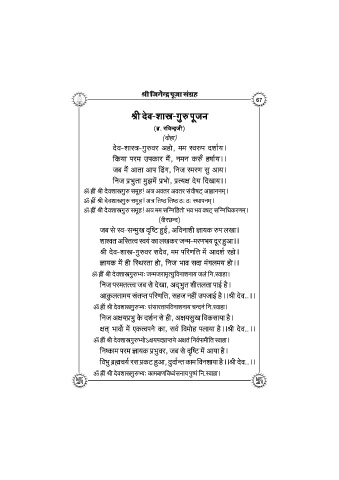 श्री जिनेन्द्र पूजा संग्रह
67
श्री देव-शास्त्र-गुरु पूजन
(ब्र. रविन्द्रजी)
(दोहा)
देव-शास्त्र-गुरुवर अहो, मम स्वरूप दर्शाय।
किया परम उपकार मैं, नमन करूँ हर्षाय।।
जब मैं आता आप ढिंग, निज स्मरण सु आय।
निज प्रभुता मुझमें प्रभो, प्रत्यक्ष देय दिखाय।।
ॐ ह्रीं श्री देवशास्त्रगुरु समूह! अत्र अवतर अवतर संवौषट् आह्वाननम्।
ॐ ह्रीं श्री देवशास्त्रगुरु समूह! अत्र तिष्ठ तिष्ठ ठः ठः स्थापनम्।
ॐ ह्रीं श्री देवशास्त्रगुरु समूह! अत्र मम सन्निहितो भव भव वषट् सन्निधिकरणम्।
(वीरछन्द)
जब से स्व-सन्मुख दृष्टि हुई, अविनाशी ज्ञायक रूप लखा।
शाश्वत अस्तित्व स्वयं का लखकर जन्म-मरणभय दूर हुआ।।
श्री देव-शास्त्र-गुरुवर सदैव, मम परिणति में आदर्श रहो।
ज्ञायक में ही स्थिरता हो, निज भाव सदा मंगलमय हो।।
ॐ ह्रीं श्री देवशास्त्रगुरुभ्यः जन्मजरामृत्युविनाशनाय जलं नि.स्वाहा।
निज परमतत्त्व जब से देखा, अद्भुत शीतलता पाई है।
आकुलतामय संतप्त परिणति, सहज नहीं उपजाई है।।श्री देव..।।
ॐ ह्रीं श्री देवशास्त्रगुरुभ्यः संसारतापविनाशनाय चन्दनं नि.स्वाहा।
निज अक्षयप्रभु के दर्शन से ही, अक्षयसुख विकसाया है।
क्षत् भावों में एकत्वपने का, सर्व विमोह पलाया है।।श्री देव..।।
ॐ ह्रीं श्री देवशास्त्रगुरुभ्योऽक्षयपदप्राप्तये अक्षतं निर्वपामीति स्वाहा।
निष्काम परम ज्ञायक प्रभुवर, जब से दृष्टि में आया है।
विभु ब्रह्मचर्य रस प्रकट हुआ, दुर्दान्त काम विनशाया है।।श्री देव..।।
ॐ ह्रीं श्री देवशास्त्रगुरुभ्यः कामबाणविध्वंसनाय पुष्पं नि.स्वाहा।